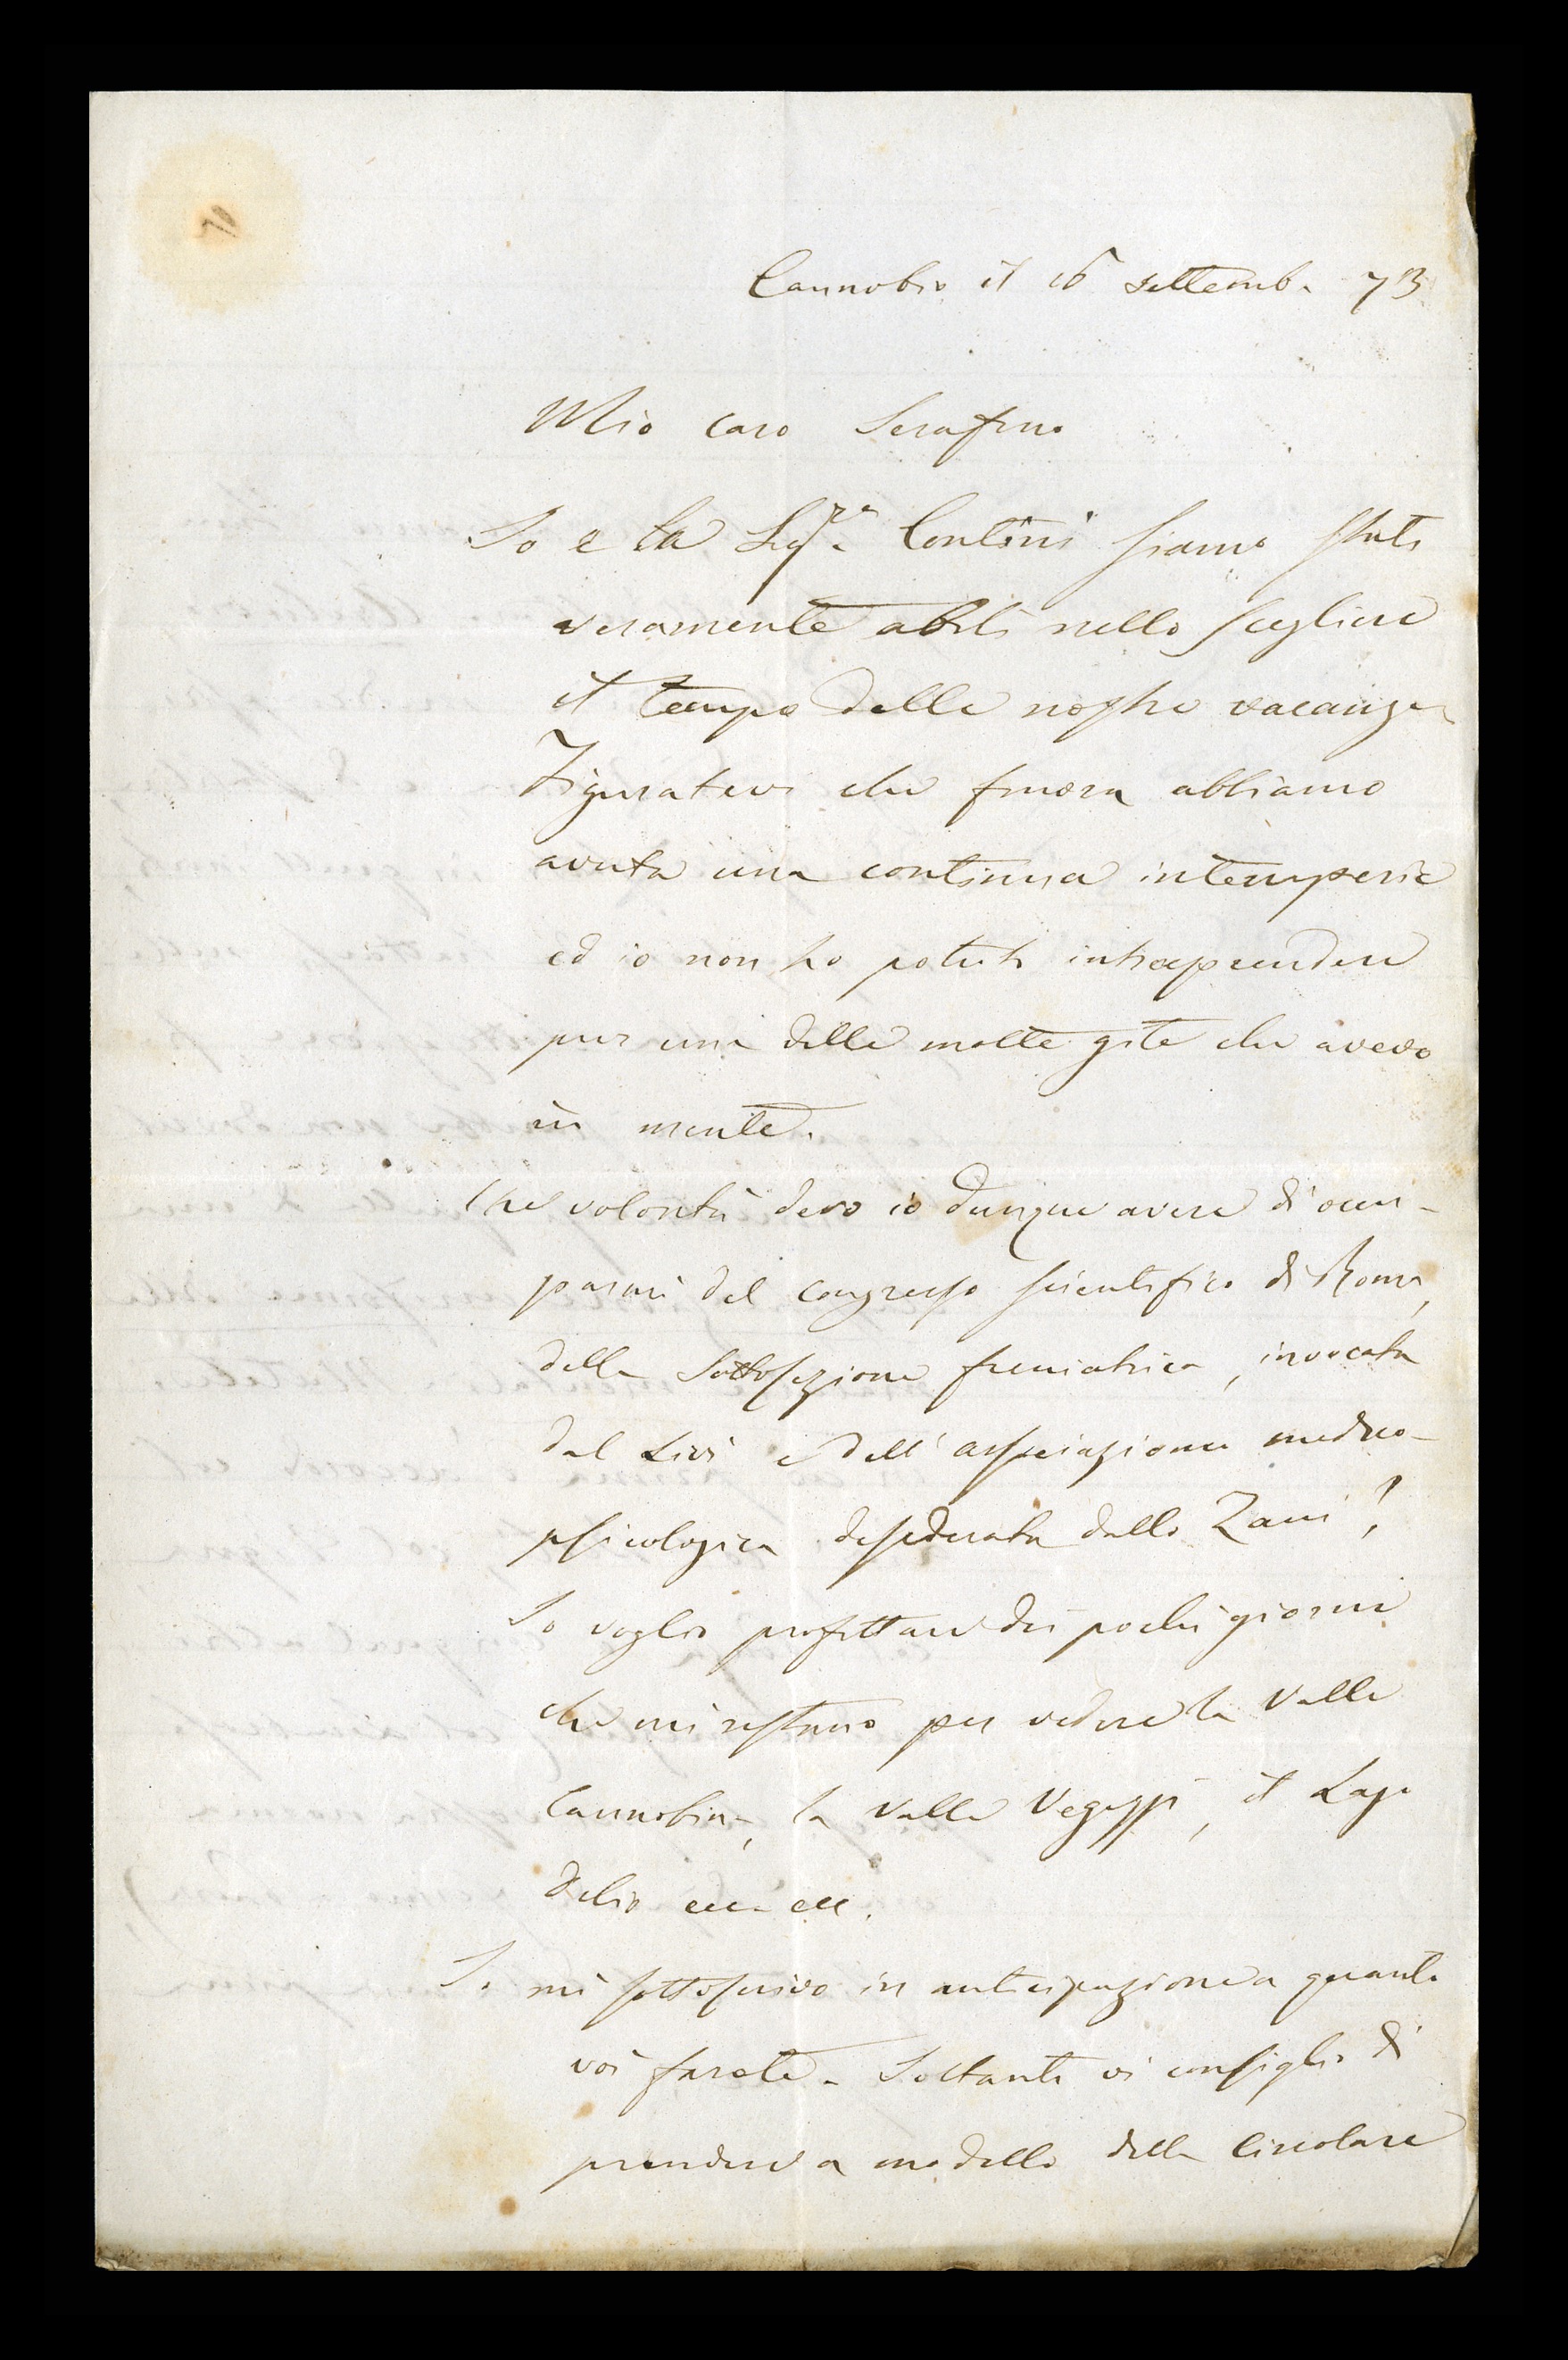 Cannobio il 16 settemb. 73
Mio caro Serafino
Io e la Sigra. Contini siamo stati
veramente abili nello scegliere
il tempo delle nostre vacanze.
Figuratevi che finora abbiamo
avuta una continua intemperie
ed io non ho potuto intraprendere
pur una delle molte gite che avevo
in mente.
Che volontà devo io dunque avere di occu-
parmi del congresso scientifico di Roma,
della Sottosezione freniatrica, invocata
dal Livi e dell'associazione medico-
psicologica desiderata dallo Zani?
Io voglio profittare dei pochi giorni
che mi restano per vedere la Valle
Cannobina, la Valle Vegezzi, il Lago
Delio ecc. ecc.
Io mi sottoscrivo in anticipazione a quanto
voi farete. Soltanto vi consiglio di
prendere a modello della Circolare